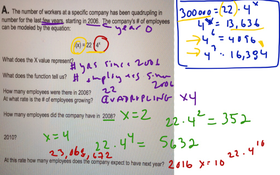 A. The number of workers at a specific company has been quadrupling in
number for the last few years, starting in 2006. The company's # of employees
can be modeled by the equation.
year 0
f(x) = 22 · 4^x
What does the X value represent?
# yrs since 2006
What does the function tell us?
# employees since 2006
How many employees were there in 2006?
22
At what rate is the # of employees growing?
QUADRUPLING x4
How many employees did the company have in 2008?
x=2 22·4² = 352
2010?
x=4 22·4⁴ = 5632
23,068,672
At this rate how many employees does the company expect to have next year?
2016 x=10 22·4¹⁰
300000 = 22·4^x
4^x = 13,636
4⁶ = 4096
4⁷ = 16,384